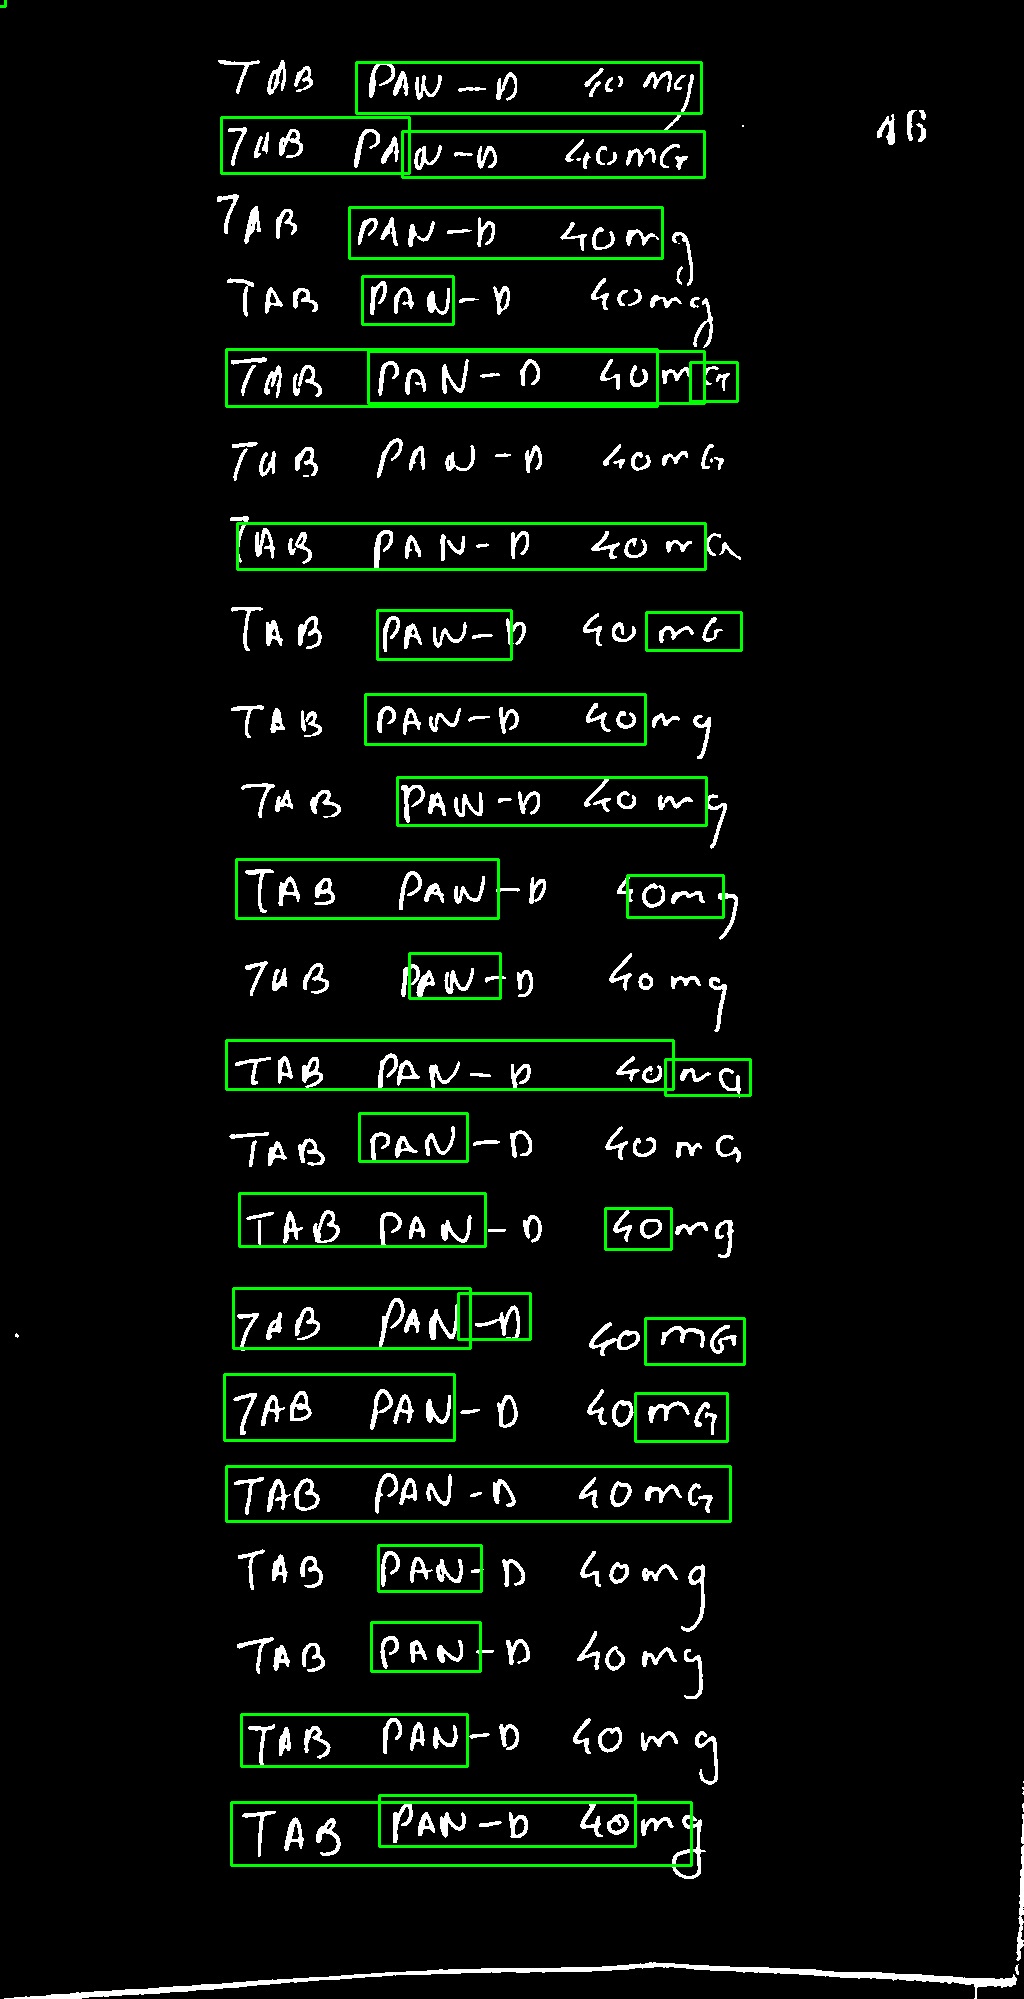 TAB PAN-D 40 mg
16
TAB PAN-D 40mG
TAB PAN-D 40mg
TAB PAN-D 40mg
TAB PAN-D 40mG
TAB PAN-D 40mG
TAB PAN-D 40mG
TAB PAN-D 40 mG
TAB PAN-D 40mg
TAB PAN-D 40 mg
TAB PAN-D 40mg
TAB PAN-D 40 mg
TAB PAN-D 40mG
TAB PAN-D 40 mG
TAB PAN-D 40mg
TAB PAN-D 40 mG
TAB PAN-D 40 mG
TAB PAN-D 40mG
TAB PAN-D 40mg
TAB PAN-D 40 mg
TAB PAN-D 40 mg
TAB PAN-D 40mg